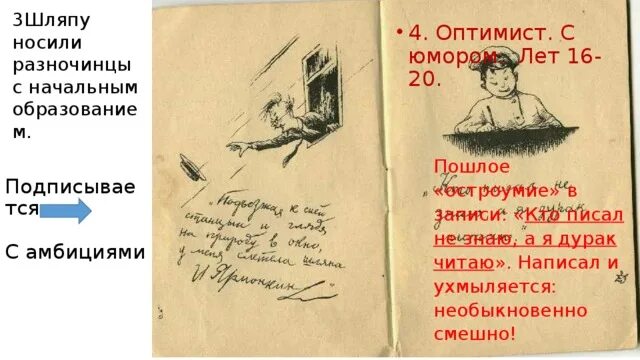 3Шляпу
носили
разночинцы
с начальным
образование
м.
Подписывае
тся
С амбициями
„Подъезжая к сией
станции и глядя
на природу в окно,
у меня слетела шляпа
И Ярмонкин
• 4. Оптимист. С
юмором. Лет 16-
20.
не
дурак
Пошлое
«остроумие» в
записи: «Кто писал
не знаю, а я дурак
читаю». Написал и
ухмыляется:
необыкновенно
смешно!